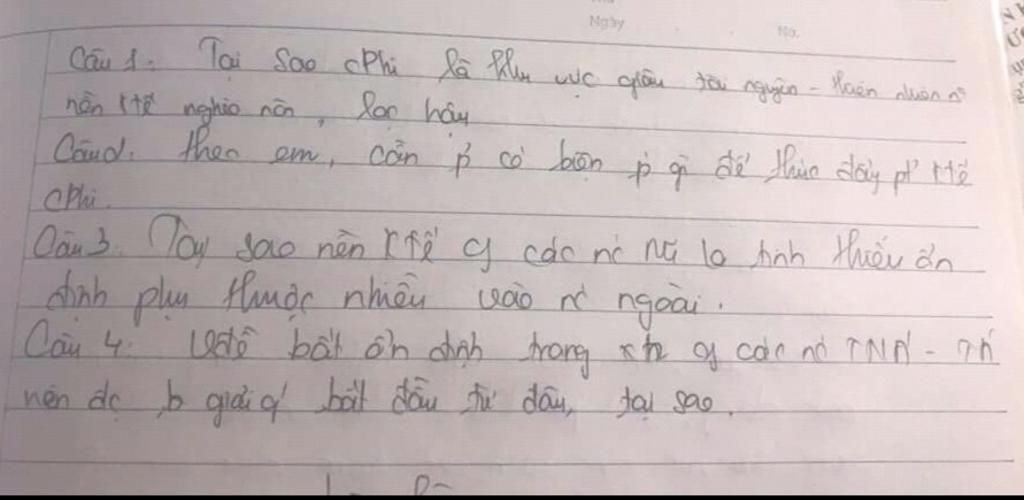 Ngày No.
Câu 1. Tại sao cPhi là khu vực giàu tài nguyên - thiên nhiên n`
nền ktế nghèo nàn, lạc hậu
Câu 2. theo em, cần p` có biện p' gì để thúc đẩy pt' ktế
cPhi.
Câu 3. Tại sao nền ktế of các nc Mĩ la tinh thiếu ổn
định phụ thuộc nhiều vào nc ngoài.
Câu 4. Vđề bất ổn định trong xh of các nc TNA - TA
nên đc giải q' bắt đầu từ đâu, tại sao.